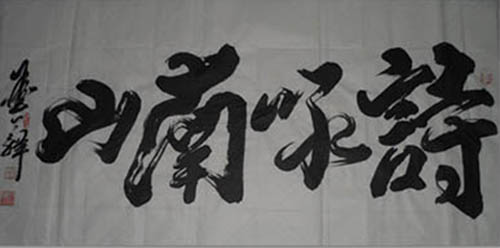 詩咏南山